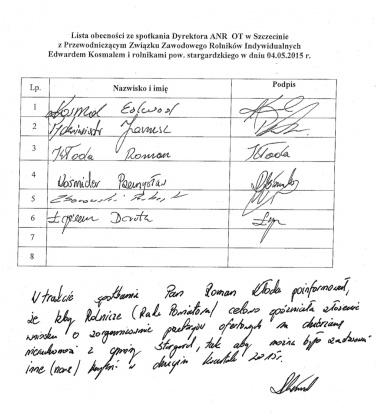 Lista obecności ze spotkania Dyrektora ANR OT w Szczecinie
z Przewodniczącym Związku Zawodowego Rolników Indywidualnych
Edwardem Kosmalem i rolnikami pow. stargardzkiego w dniu 04.05.2015 r.
Lp. Nazwisko i imię Podpis
1 Kosmal Edward
2 Janusz
3 Kłoda Roman Kłoda
4 Wośmider Przemysław
5
6 Dorota
7
8
W trakcie spotkania Pan Roman Kłoda poinformował,
że Izby Rolnicze (Rada Powiatowa) celowo opóźniała złożenie
wniosku o zorganizowanie przetargów ofertowych na dzierżawę
nieruchomości z gminy Stargard, tak aby można było zastosować
inne (nowe) kryteria w drugim kwartale 2015r.